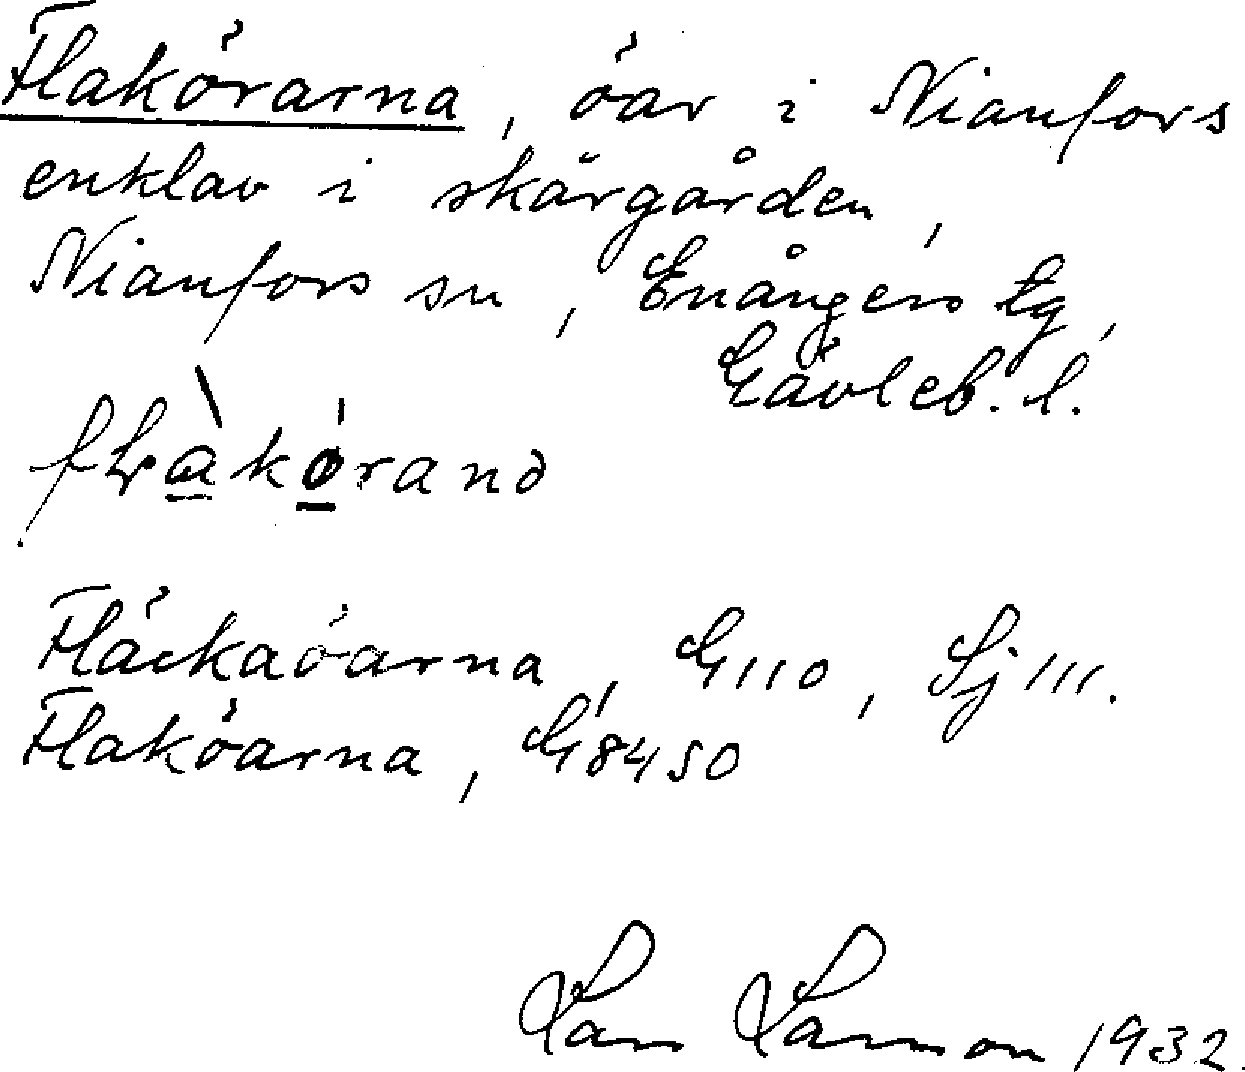 Flakörarna, öar i Nianfors
enklav i skärgården,
Nianfors sn, Enångers tg,
Gävleb. l.
Fläckaöarna, G110, Sj 111.
Faköarna, G8450
Lars Larsson 1932.